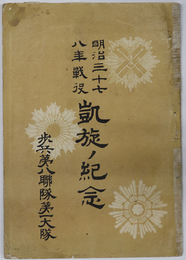 明治三十七
八年戦役
凱旋ノ紀念
歩兵第八聯隊第一大隊